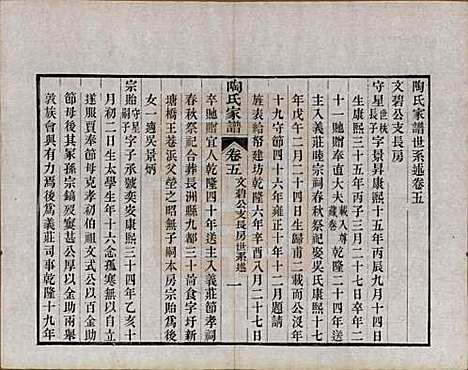 陶氏家譜世系述卷五
文碧公支長房
守星 世秩 長子 字景昇康熙十五年丙辰九月十四日
生康熙三十五年丙子三月二十七日卒年二
十一貤贈奉直大夫 載入尊藏卷 乾隆二十四年送
主入義莊睦宗祠春秋祭祀娶吳氏康熙十一
年戊午二月二十四日生歸甫二載而公沒年
十九守節四十六年雍正十年十二月題請
旌表給帑建坊乾隆六年辛酉八月二十七日
陶氏家譜 卷五 文碧公支長房世系述 一
卒貤贈宜人乾隆四十年送主入義莊節孝祠
春秋祭祀合葬長洲縣九都三圖食字圩新
塘橋王巷浜父瑩之昭無子以本房宗貽為後
女一適吳景炳
宗貽 守星子 字子承號奕安康熙三十四年乙亥十
月初二日生太學生年十六念孤寒無以自立
遂服賈奉節母克孝初伯祖文式公以百金助
節母後其家孫宗鎬浸窶甚公厚以金兩舉
敦族會興有功為義莊司事乾隆十九年